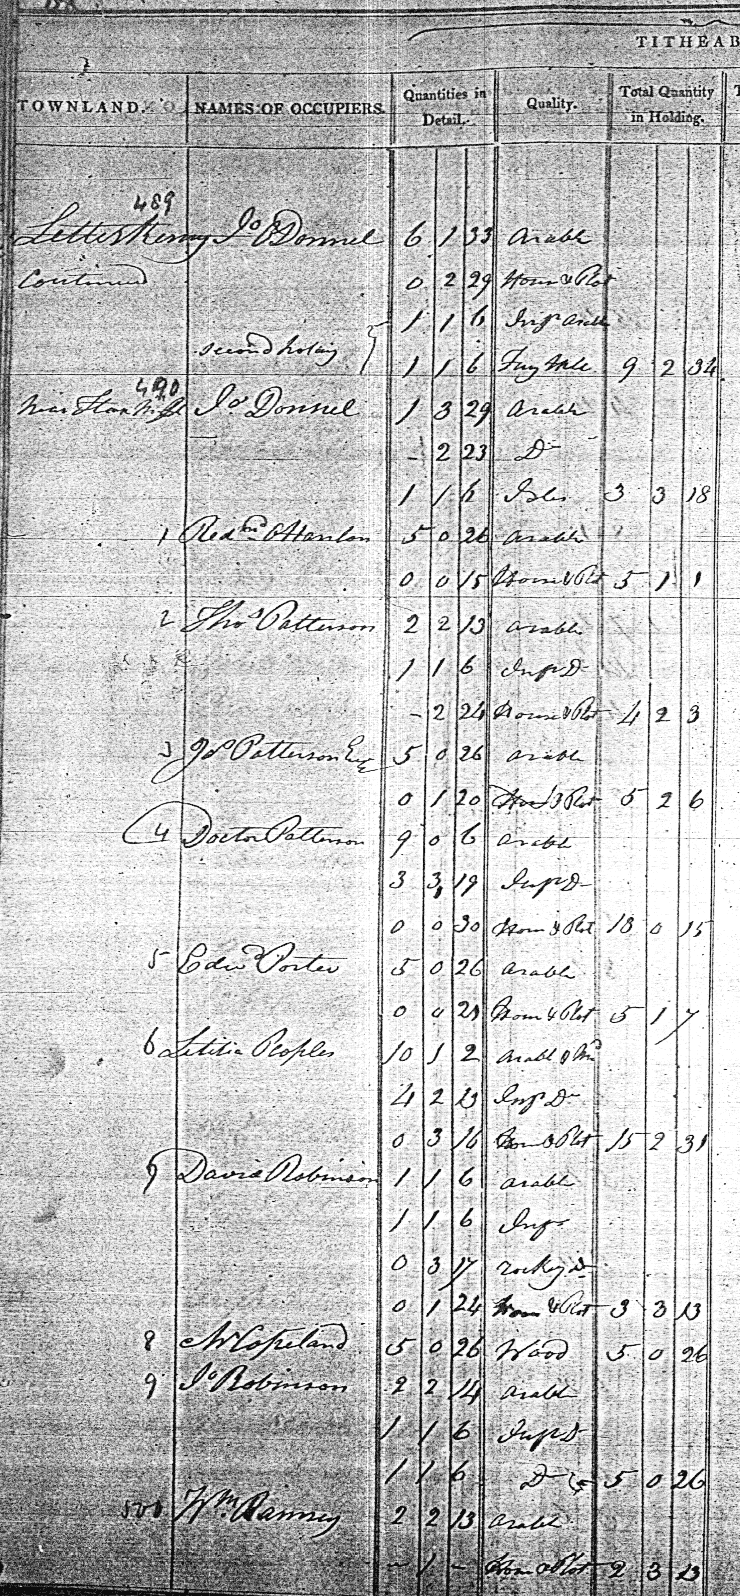 TITHEAB
TOWNLAND. NAMES OF OCCUPIERS. Quantities in Detail. Quality. Total Quantity in Holding. T
489
Letterkenny Jo O'Donnel 6 1 33 Arable
Continued 0 2 29 House & Plot
1 1 6 Infr Arable
second holding 1 1 6 9 2 34
490
near Jos Donnel 1 3 29 Arable
- 2 23 Do
1 1 6 3 3 18
1 Redmd O'Hanlon 5 0 26 Arable
0 0 15 House & Plot 5 1 1
2 Thos Patterson 2 2 13 Arable
1 1 6 Infr Do
- 2 24 House & Plot 4 2 3
3 Jas Patterson Esqr 5 0 26 Arable
0 1 20 House & Plot 5 2 6
4 Doctor Patterson 9 0 6 Arable
3 3 19 Infr Do
0 0 30 House & Plot 13 0 15
5 Edwd Porter 5 0 26 Arable
0 0 21 House & Plot 5 1 7
6 Letitia Peoples 10 1 2 Arable &
4 2 13 Infr Do
0 3 16 House & Plot 15 2 31
7 David Robinson 1 1 6 Arable
1 1 6 Infr
0 3 17 rockey Do
0 1 24 House & Plot 3 3 13
8 Copeland 5 0 26 Wood 5 0 26
9 Jo Robinson 2 2 14 Arable
1 1 6 Infr Do
1 1 6 Do 5 0 26
500 Wm Ramsey 2 2 13 Arable
- 1 - House & Plot 2 3 13